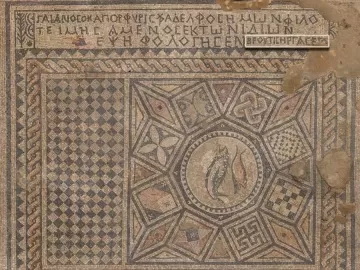 ΓΑΙΑΝΟΣΟΚΑΙΠΟΡΦΥΡΙΣ𐆖ΑΔΕΛΦΟΣΗΜΩΝΦΙΛΟ
ΤΕΙΜΗΣΑΜΕΝΟΣΕΚΤΩΝΙΔΙΩΝ
ΕΨΗΦΟΛΟΓΗΣΕΝ ΒΡΟΥΤΙΣΗΡΓΑΣΕΤΕ